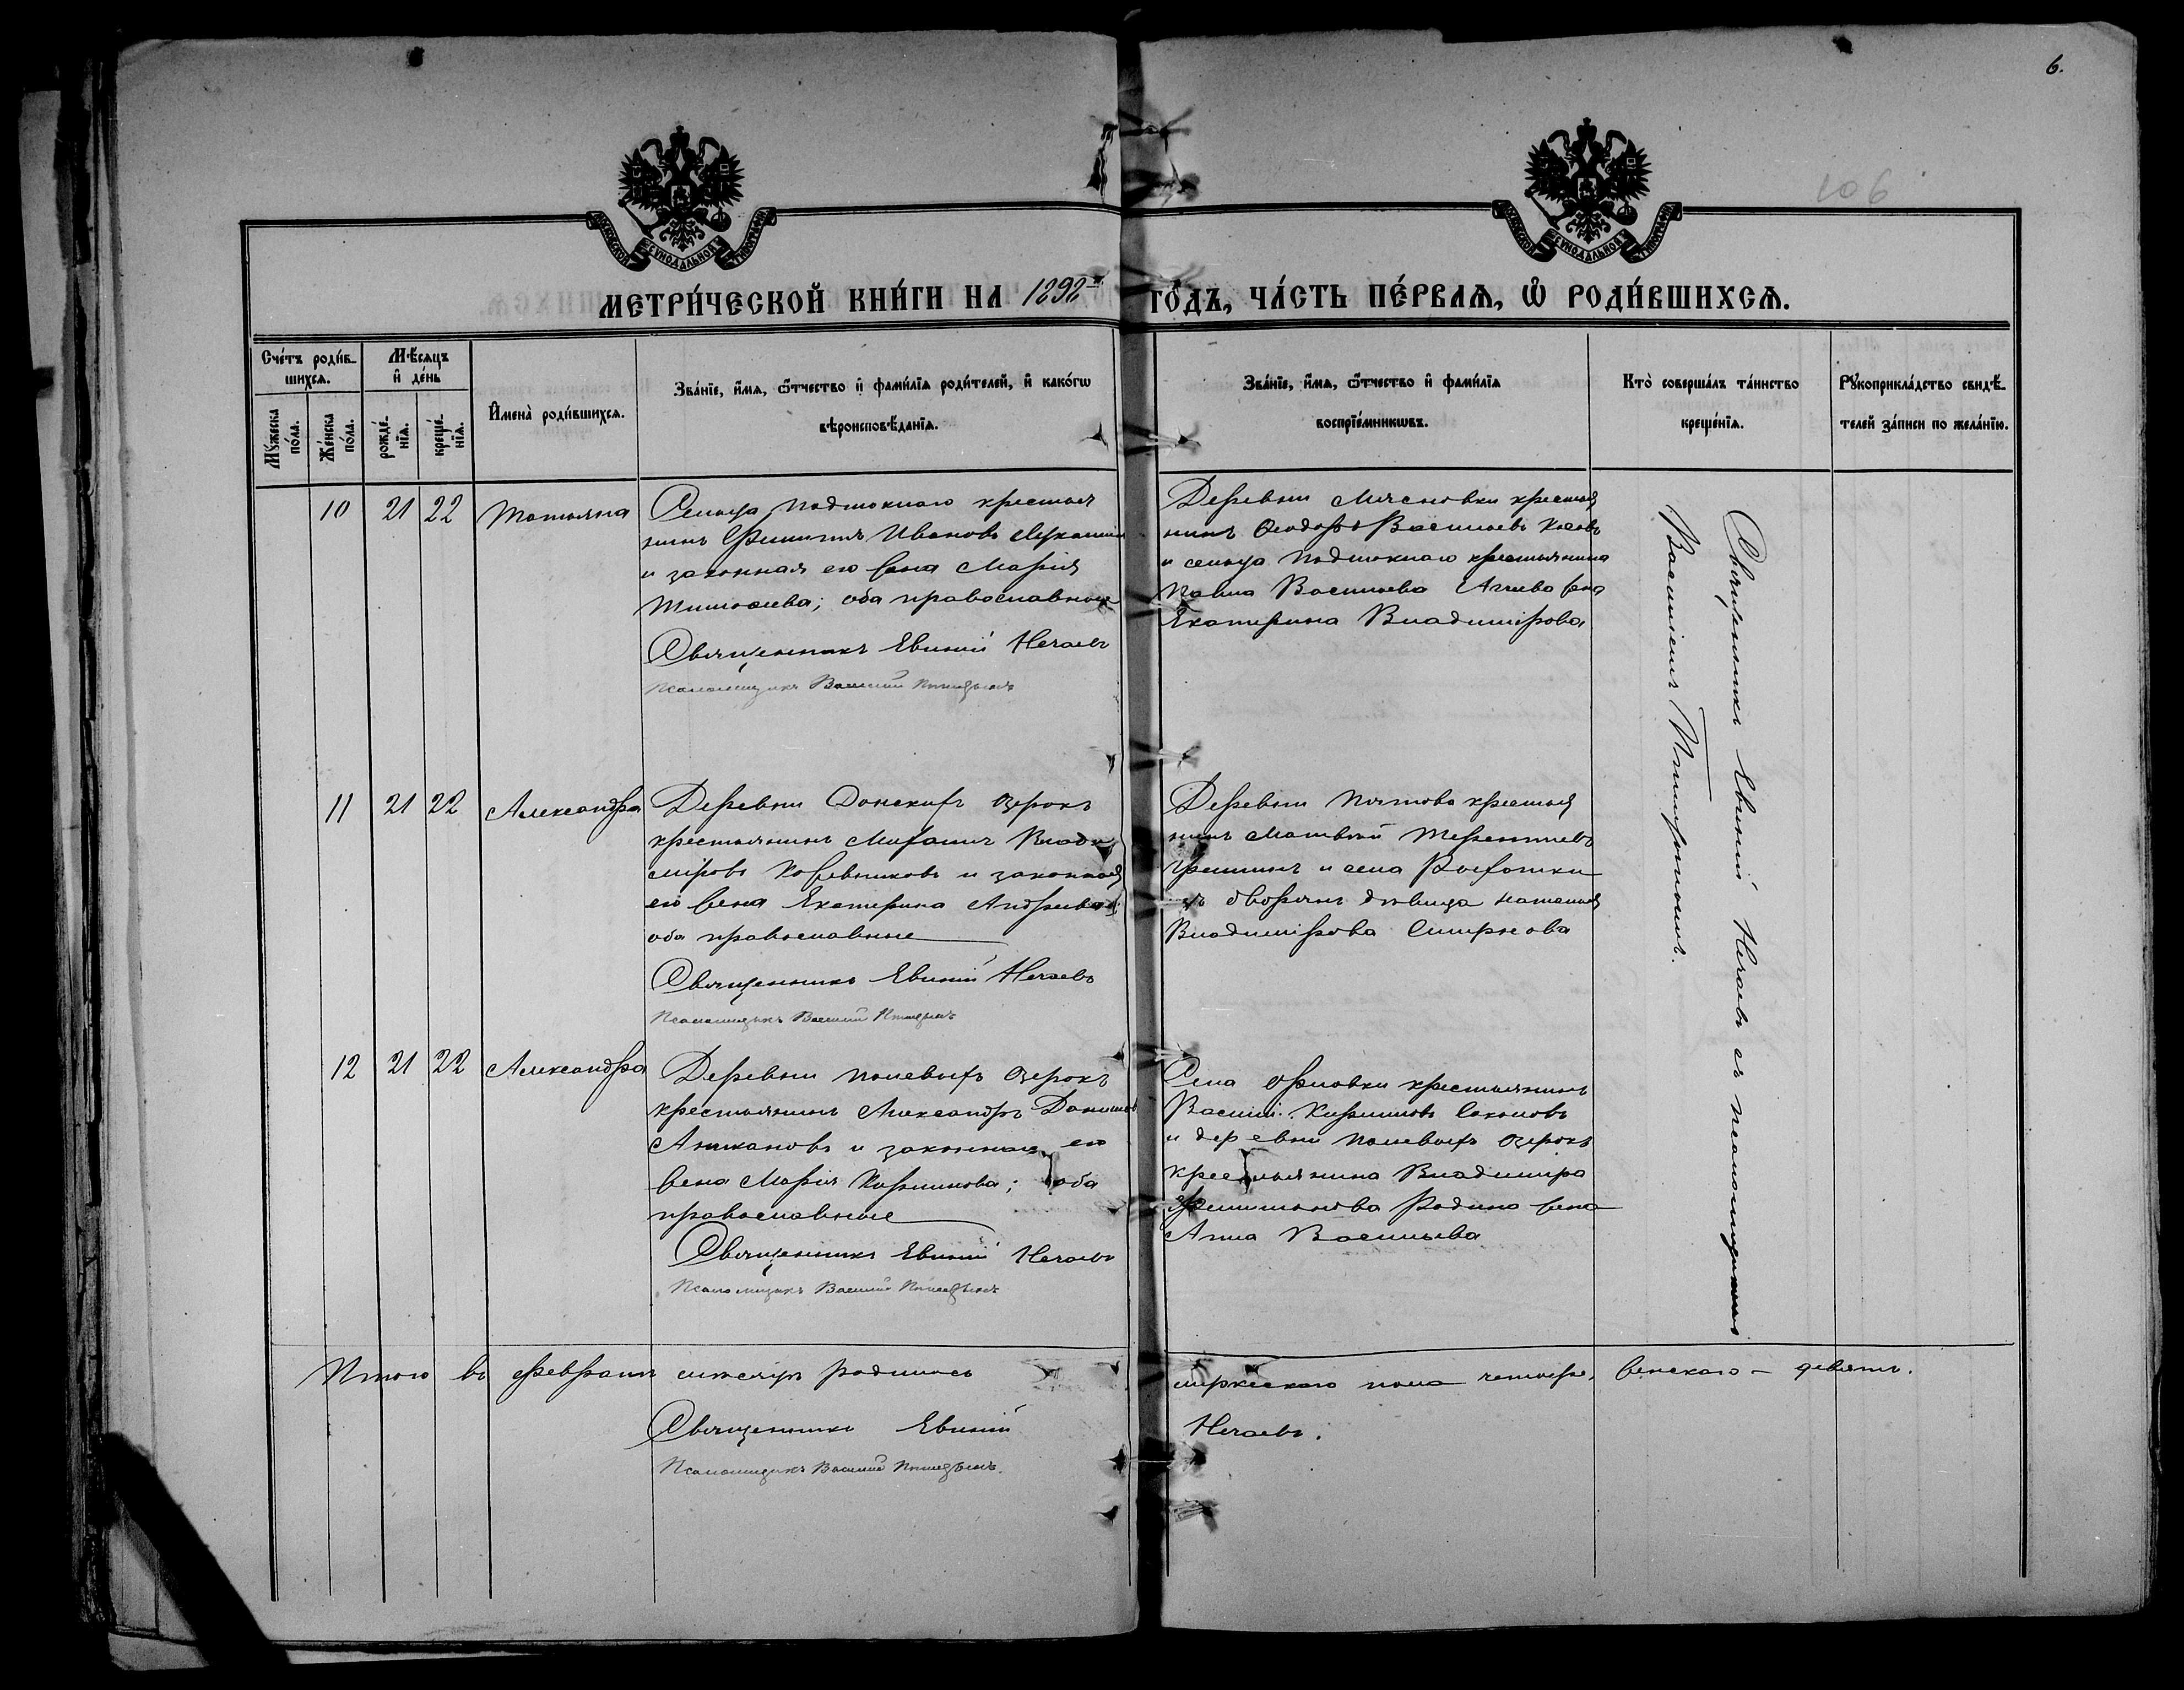 6.
106
МЕТРИ́ЧЕСКОЙ КНИ́ГИ НА 1892й ГО́ДЪ, ЧА́СТЬ ПЕ́РВАѦ, Ѿ РОДИ́ВШИХСѦ.
Сче́тъ роди́в-
шихсѧ.
Мꙋ́жеска по́ла.
Же́нска по́ла.
Мѣ́сяцъ и҆ де́нь
рожде́-
нїѧ.
креще́-
нїѧ.
И҆мена̀ роди́вшихсѧ.
Зва́нїе, и҆́мѧ, ѻ҆́тчество и҆ фами́лїѧ роди́телей, и҆ како́гѡ
вѣроисповѣ́данїѧ.
Зва́нїе, и҆́мѧ, ѻ҆́тчество и҆ фами́лїѧ
воспрїе́мникѡвъ.
Кто̀ соверша́лъ та́инство
креще́нїѧ.
Рꙋкоприкла́дство свидѣ́-
телей за́писи по жела́нїю.
10 21 22 Татьяна
Сельца Подтокнаго крестья
нинъ Филиппъ Ивановъ
и законная его жена Марія
оба православные
Священникъ Евгеній Нечаевъ
Псаломщикъ Василій
Деревни Мясновки крестья
нинъ Ѳеодоръ Васильевъ Косовъ
и сельца Подтокнаго крестьянина
Павла Васильева жена
Екатерина Владимірова
11 21 22 Александра
Деревни Донскихъ Озерокъ
крестьянинъ Михаилъ Влади
міровъ и законная
его жена Екатерина Андреева;
оба православные
Священникъ Евгеній Нечаевъ
Псаломщикъ Василій
Деревни крестья
нинъ Матвѣй Терентіевъ
и села
дворянъ дѣвица Наталія
Владимірова Смирнова
12 21 22 Александра
Деревни Полевыхъ Озерокъ
крестьянинъ Александръ Данилов
Аникановъ и законная его
жена Марія Кириллова; оба
православные
Священникъ Евгеній Нечаевъ
Псаломщикъ Василій
Села Орловки крестьянинъ
Василій Кирилловъ Соколовъ
и деревни Полевыхъ Озерокъ
крестьянина Владиміра
Филимонова Родина жена
Анна Васильева
Священникъ Евгеній Нечаевъ съ псаломщикомъ
Василіемъ
Итого въ Февралѣ мѣсяцѣ родилось мужескаго пола четыре, женскаго – девять.
Священникъ Евгеній Нечаевъ.
Псаломщикъ Василій